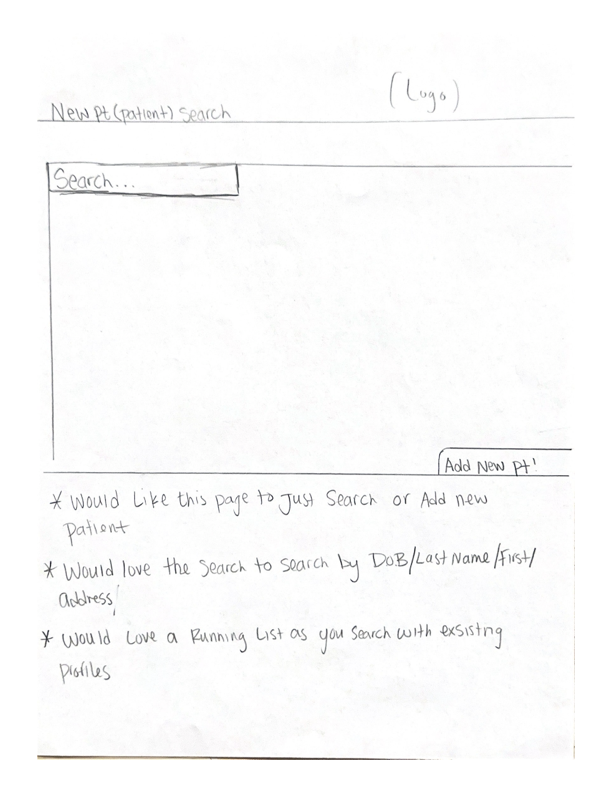 New Pt (patient) Search
(Logo)
Search...
Add New Pt!
* Would Like this page to Just Search or Add new
patient
* Would love the Search to Search by DOB/Last Name/First/
address
* Would Love a Running List as you Search with exsisting
profiles